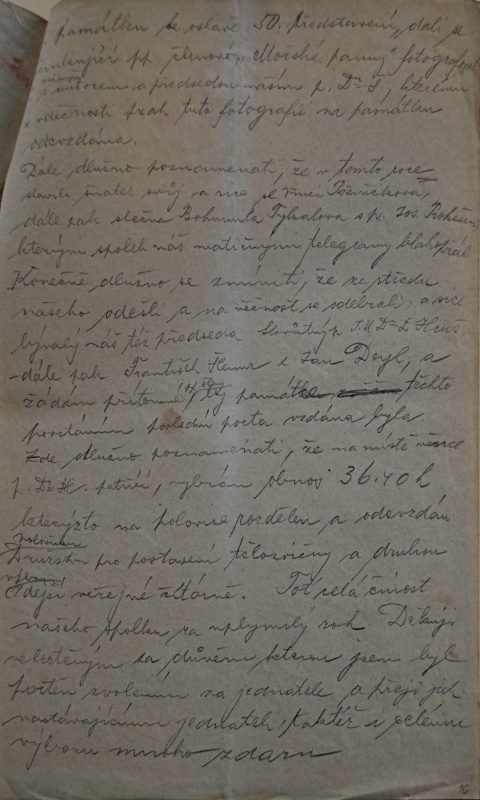 památku ke oslavě 50. představení, dali se
pp. členové „Mořské panny" fotografovati
s autorem a předsedou naším p. Dr. kterému
vděčnosti pak tuto fotografii na památku
odevzdána.
Dále dlužno poznamenati, že v tomto roce
slavili sňatek svůj a sice sl.
dále pak slečna Bohumila s p. Jos.
kterým spolek náš telegramy blahopřál
Konečně dlužno se zmíniti, že ze středu
našeho odešli a na věčnost se odebrali: a sice
bývalý náš též předseda Slovutný p. J.U.Dr.
dále pak František a Jan Deyl, a
žádám přítomné, by památce těchto
povstáním poslední pocta vzdána byla.
Zde dlužno poznamenati, že na místě věnce
p. Dr. H. patřící, vybrán obnos 36.40 h
kterýžto na polovic rozdělen a odevzdán
polovicu
Družstvu pro postavení tělocvičny a druhou
zdejší veřejné čítárně. Toť celá činnost
našeho spolku za uplynulý rok Děkuji
velectěným za důvěru kterou jsem byl
poctěn zvolením za jednatele a přeji jak
nastávajícímu jednateli, taktéž i celému
výboru mnoho zdaru.
16